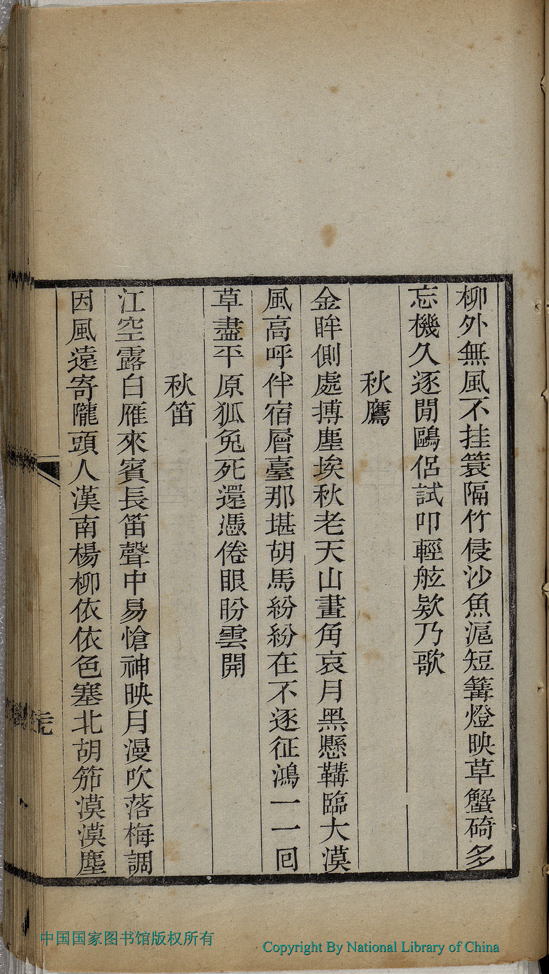 柳外無風不挂簑隔竹侵沙魚滬短篝燈映草蟹碕多
忘機久逐閒鷗侶試叩輕舷欵乃歌
秋鷹
金眸側處搏塵埃秋老天山畫角哀月黑懸鞲臨大漠
風高呼伴宿層臺那堪胡馬紛紛在不逐征鴻一一回
草盡平原狐兔死還憑倦眼盼雲開
秋笛
江空露白雁來賓長笛聲中易愴神映月漫吹落梅調
因風遠寄隴頭人漢南楊柳依依色塞北胡笳漠漠塵
中国国家图书馆版权所有
Copyright By National Library of China